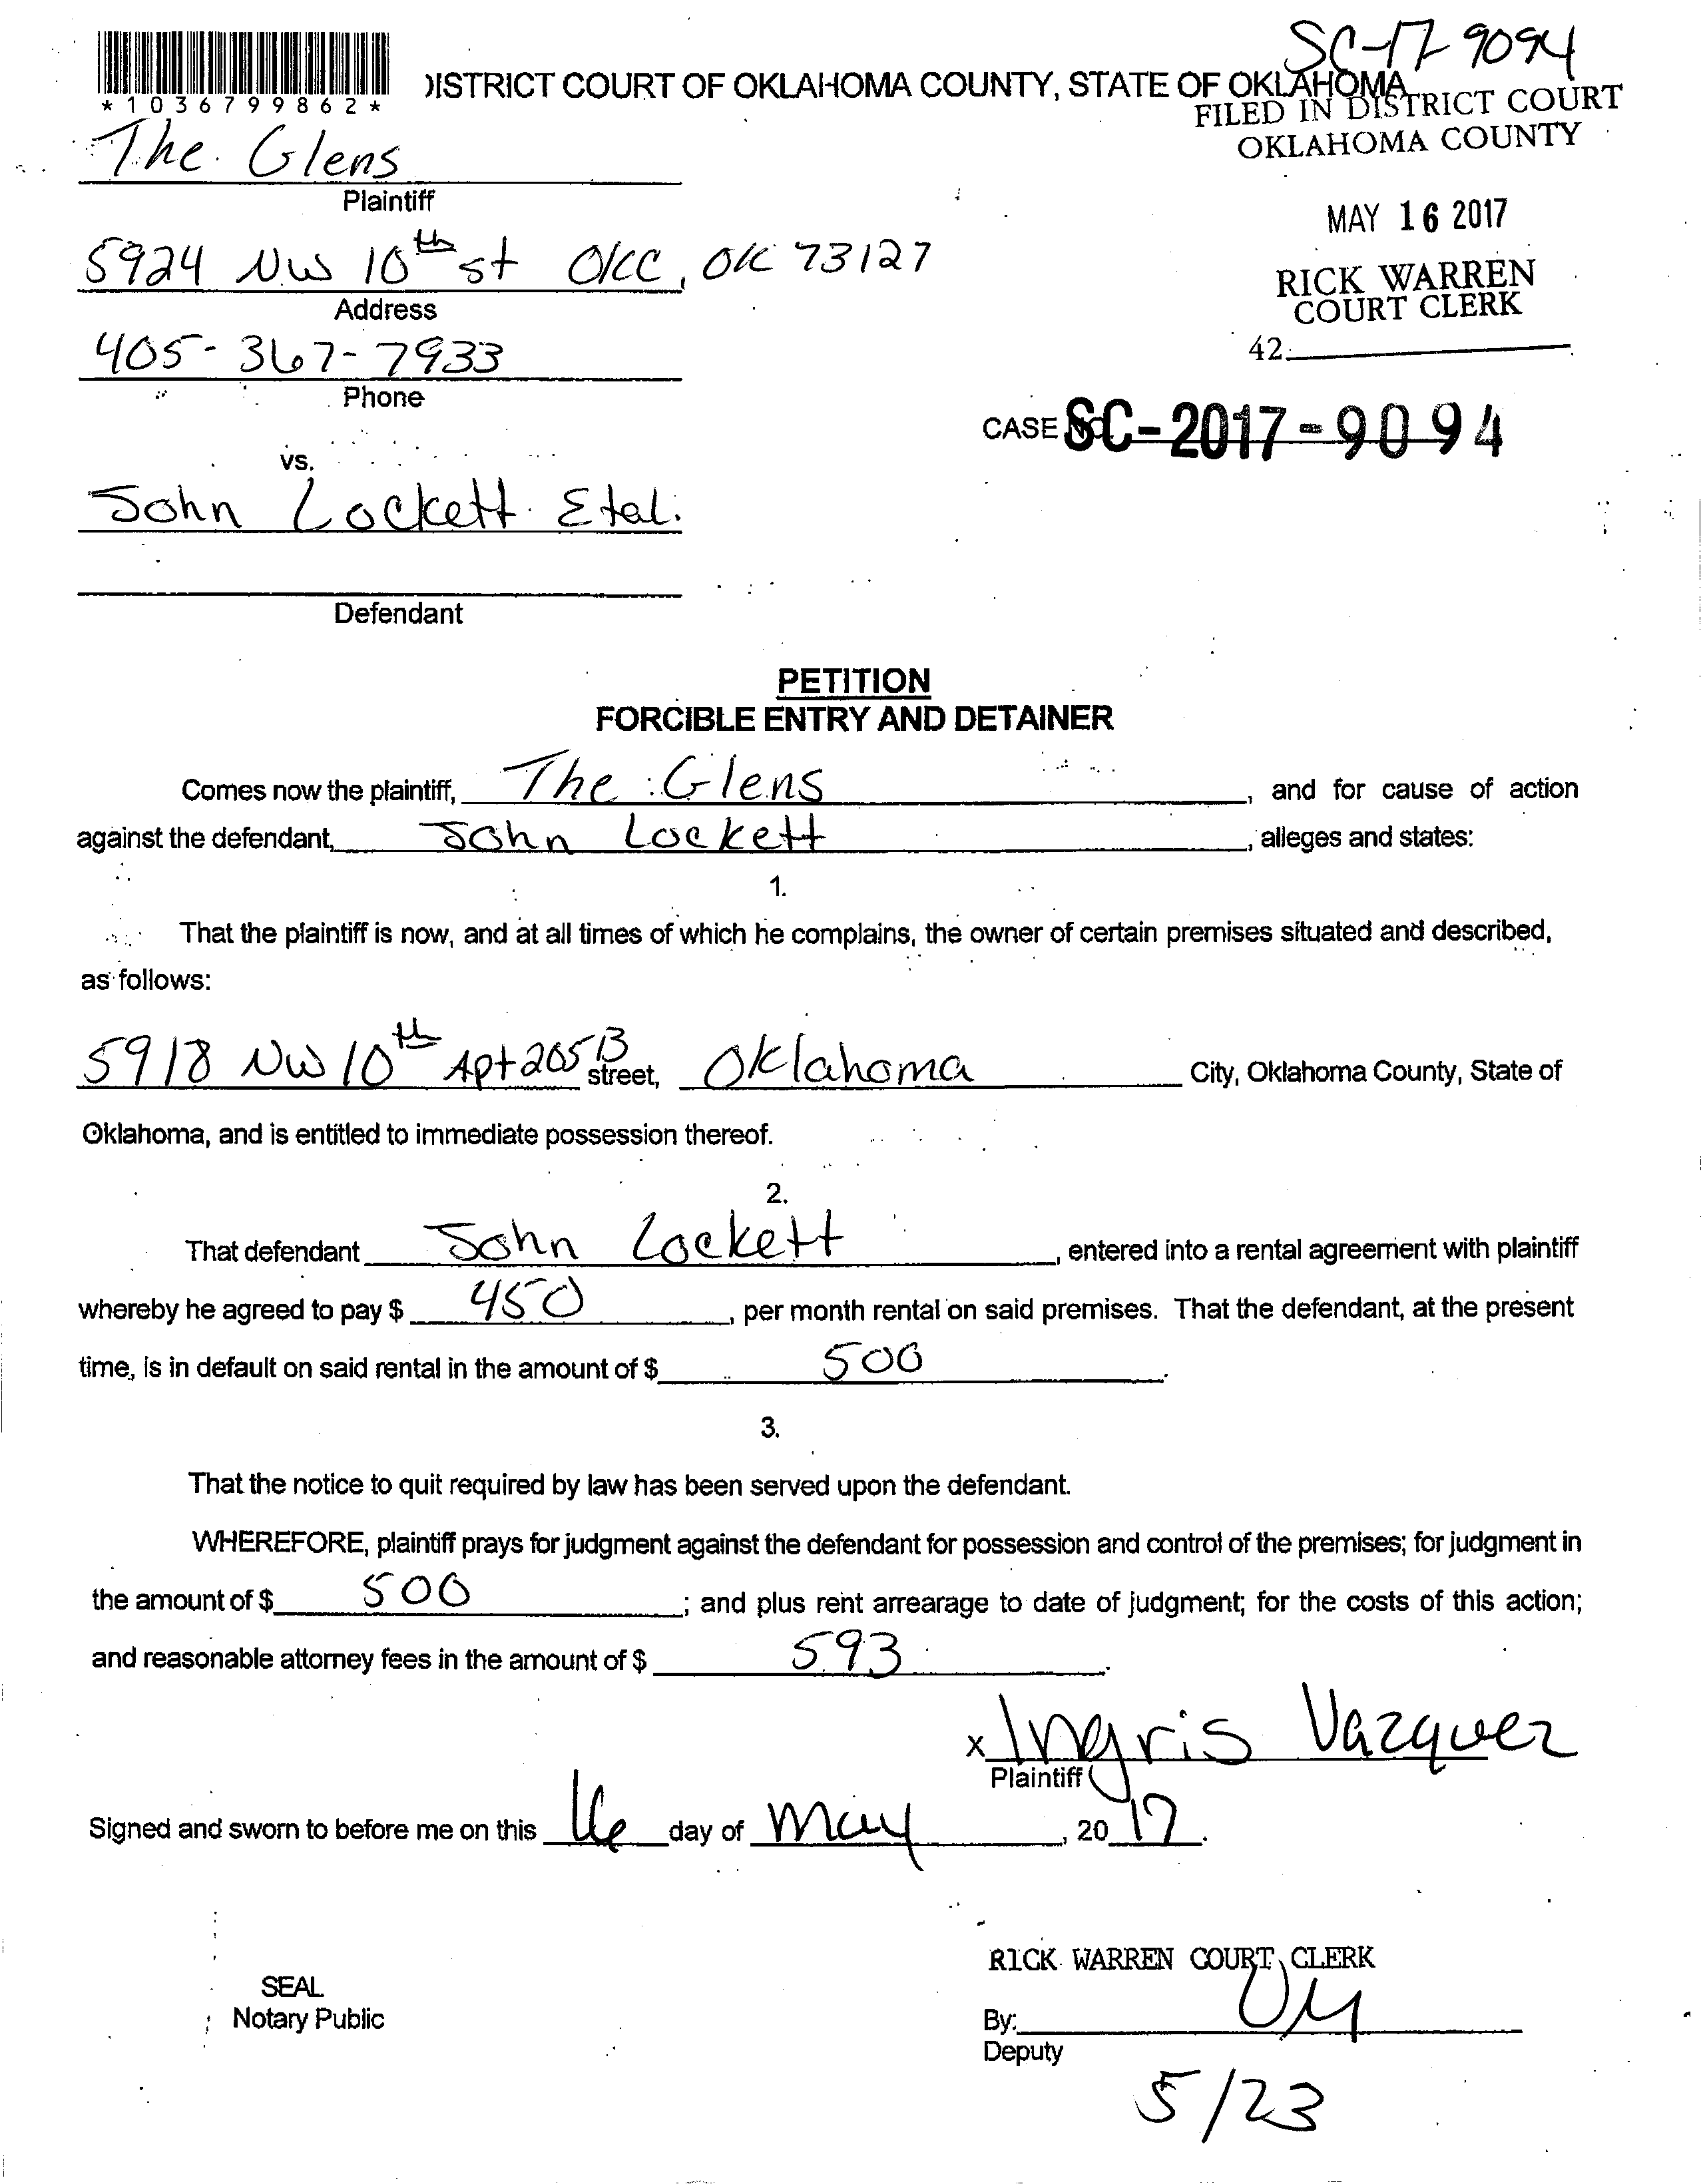 SC-17 9094
*1036799862*
DISTRICT COURT OF OKLAHOMA COUNTY, STATE OF OKLAHOMA
FILED IN DISTRICT COURT
OKLAHOMA COUNTY
The Glens
Plaintiff
MAY 16 2017
5924 NW 10th st OKC, OK 73127
Address
RICK WARREN
COURT CLERK
405-367-7933
42
Phone
CASE NO. SC-2017-9094
vs.
John Lockett Etal.
Defendant
PETITION
FORCIBLE ENTRY AND DETAINER
Comes now the plaintiff, The Glens, and for cause of action
against the defendant, John Lockett, alleges and states:
1.
That the plaintiff is now, and at all times of which he complains, the owner of certain premises situated and described,
as follows:
5918 NW 10th Apt 205 B street, Oklahoma City, Oklahoma County, State of
Oklahoma, and is entitled to immediate possession thereof.
2.
That defendant John Lockett, entered into a rental agreement with plaintiff
whereby he agreed to pay $ 450, per month rental on said premises. That the defendant, at the present
time, is in default on said rental in the amount of $ 500.
3.
That the notice to quit required by law has been served upon the defendant.
WHEREFORE, plaintiff prays for judgment against the defendant for possession and control of the premises; for judgment in
the amount of $ 500; and plus rent arrearage to date of judgment; for the costs of this action;
and reasonable attorney fees in the amount of $ 593.
x Ingris Vazquez
Plaintiff
Signed and sworn to before me on this 16 day of May, 20 17.
RICK WARREN COURT CLERK
SEAL
Notary Public
By:
Deputy
5/23